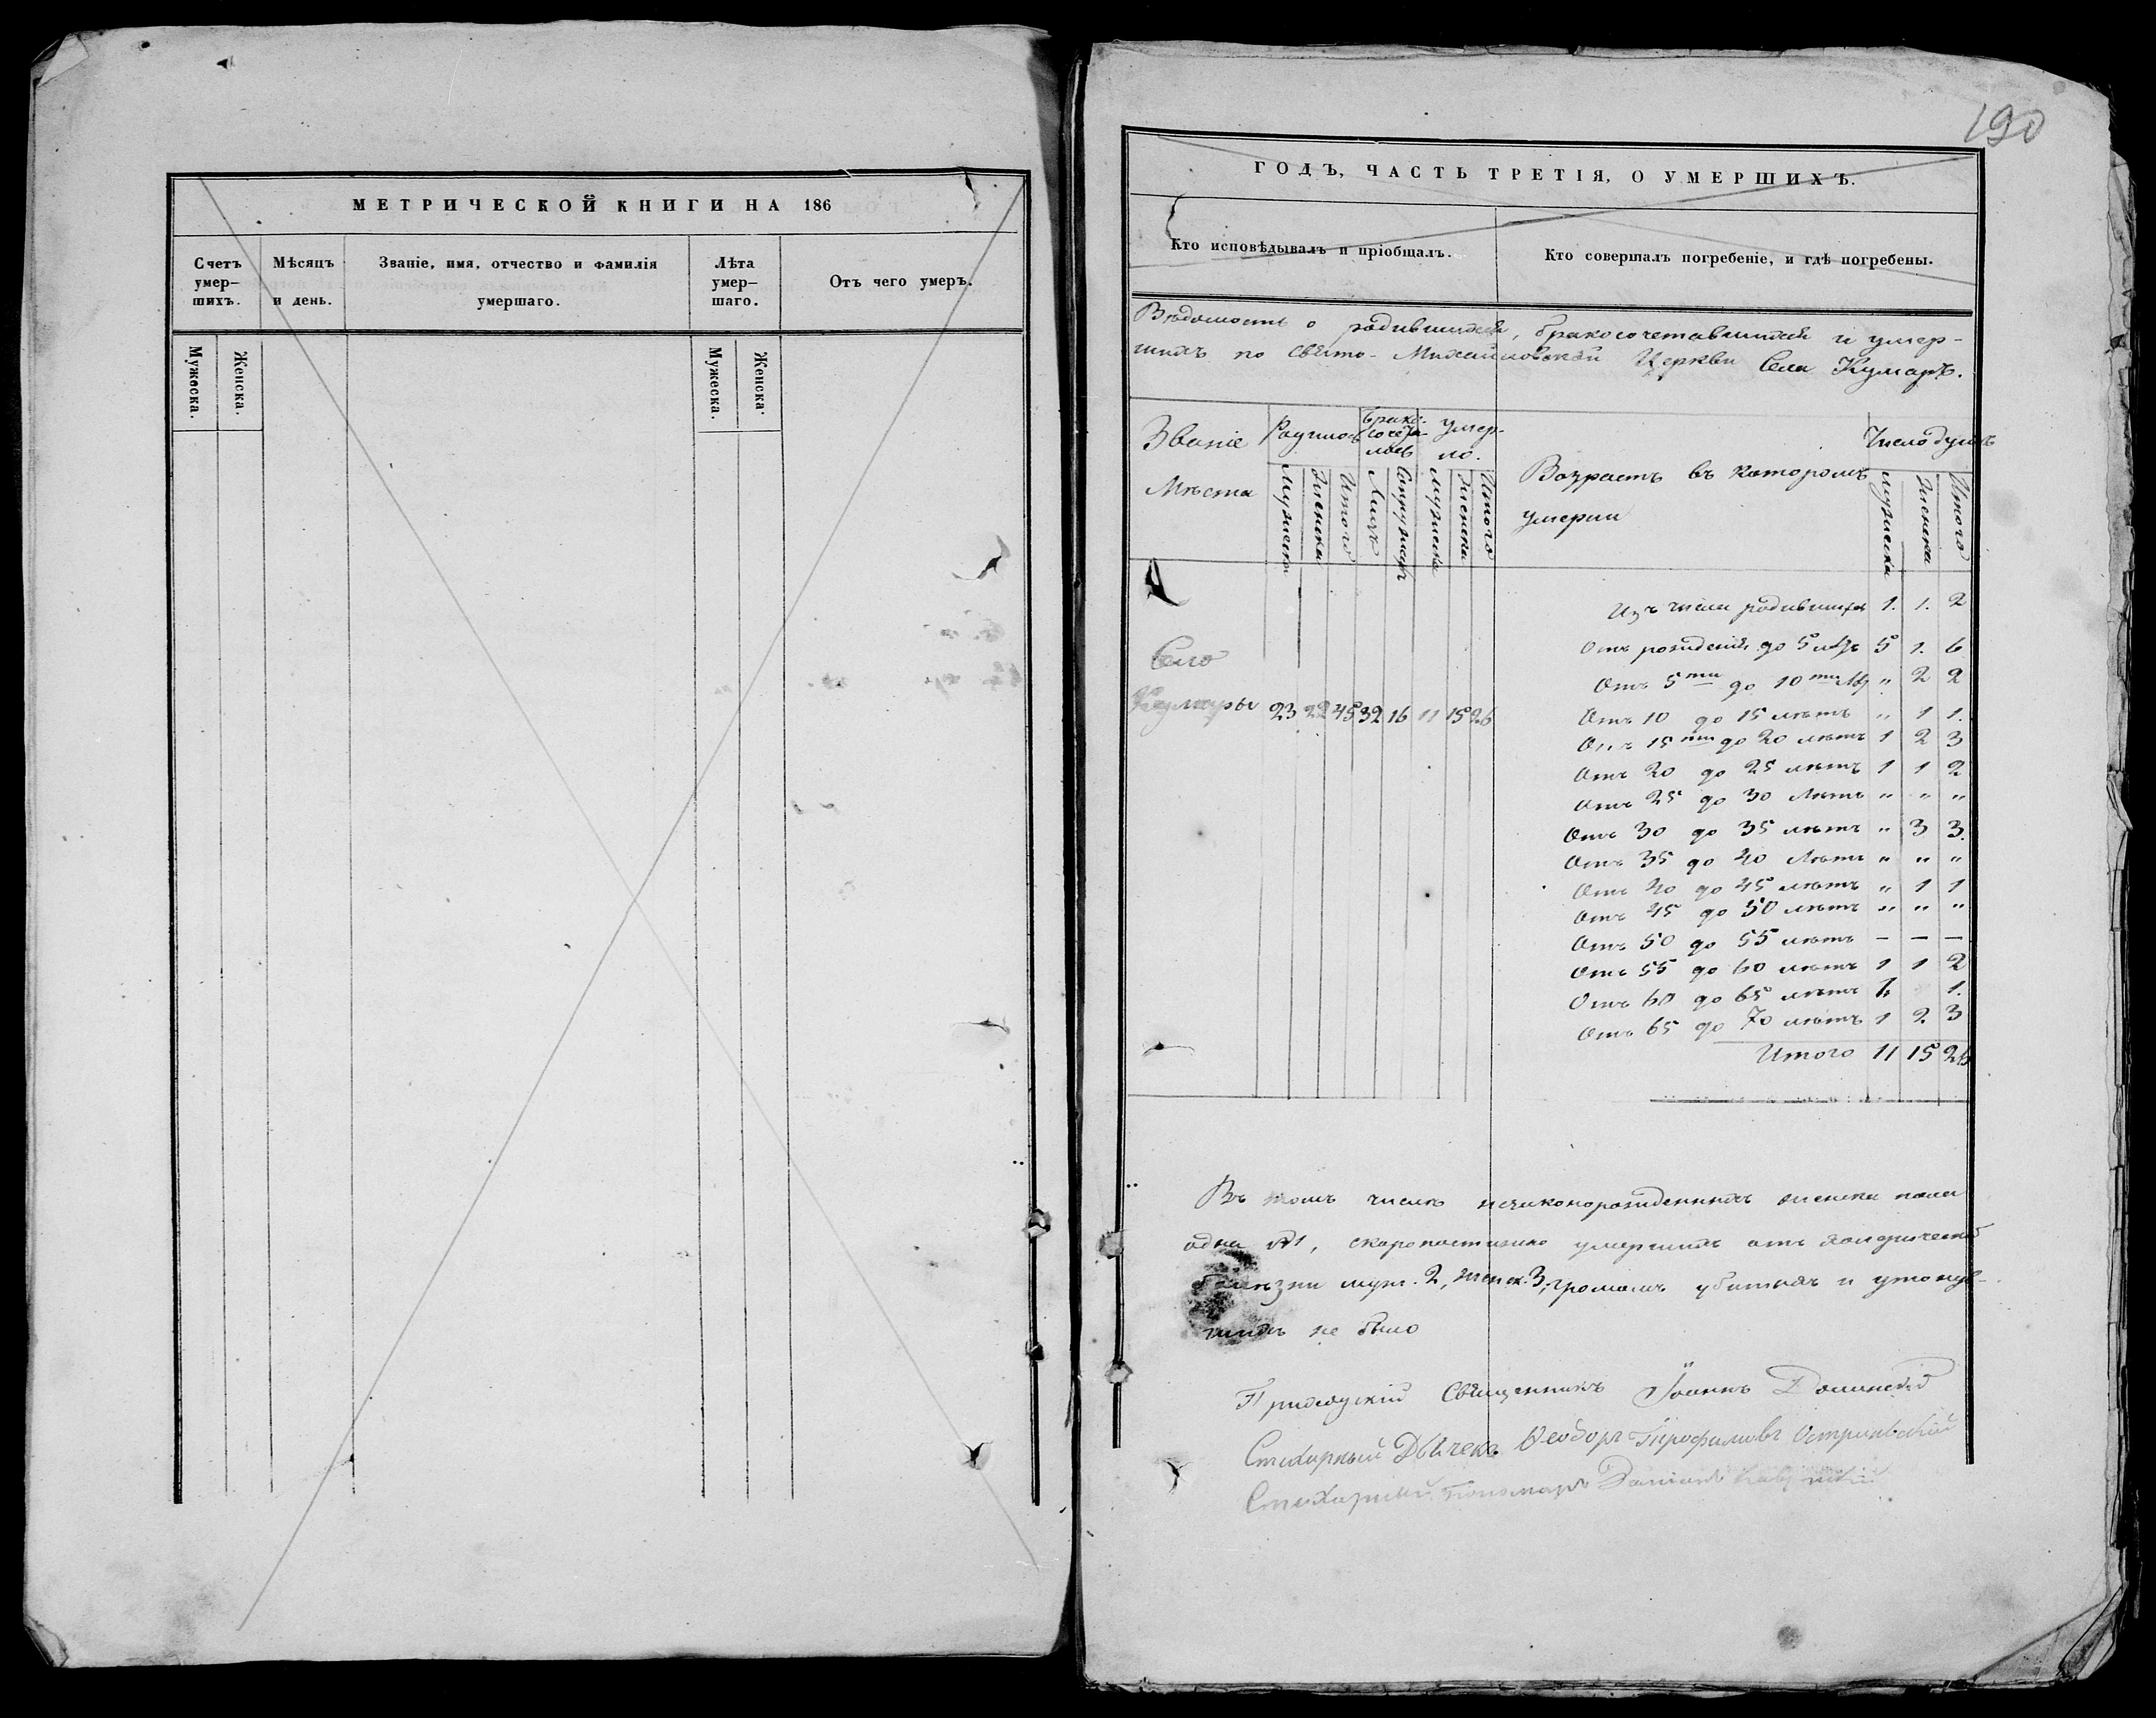 МЕТРИЧЕСКОЙ КНИГИ НА 186
Счетъ умер-шихъ. Мѣсяцъ и день. Званіе, имя, отчество и фамилія умершаго. Лѣта умер-шаго. Отъ чего умеръ.
Мужеска. Женска. Мужеска. Женска.
190
ГОДЪ, ЧАСТЬ ТРЕТІЯ, О УМЕРШИХЪ.
Кто исповѣдывалъ и пріобщалъ. Кто совершалъ погребеніе, и гдѣ погребены.
Вѣдомость о родившихся, бракосочетавшихся и умер-
шихъ по Свято-Михайловской Церкви Села Кумаръ.
Званіе Мѣста Родилось Брако-сочета-лось Умер-ло.
Мужеска Женска Итого Лицъ Супружествъ Мужеска Женска Итого
Возрастъ въ которомъ умерли Число душъ
Мужеска Женска Итого
Село
Кумары 23 22 45 32 16 11 15 26
Изъ числа родившихся 1. 1. 2
Отъ рожденія до 5 лѣтъ 5 1. 6
Отъ 5ти до 10ти лѣтъ " 2 2
Отъ 10 до 15 лѣтъ " 1 1.
Отъ 15ти до 20 лѣтъ 1 2 3
Отъ 20 до 25 лѣтъ 1 1 2
Отъ 25 до 30 лѣтъ " " "
Отъ 30 до 35 лѣтъ " 3 3.
Отъ 35 до 40 лѣтъ " " "
Отъ 40 до 45 лѣтъ " 1 1
Отъ 45 до 50 лѣтъ " " "
Отъ 50 до 55 лѣтъ — — —
Отъ 55 до 60 лѣтъ 1 1 2
Отъ 60 до 65 лѣтъ 1. 1.
Отъ 65 до 70 лѣтъ 1 2 3
Итого 11 15 26
Въ томъ числѣ незаконорожденныхъ женска пола
одна 1, скоропостижно умершихъ отъ
болѣзни муж. 2, женск. 3, громомъ убитыхъ и утонув-
шихъ не было
Приходскій Священникъ Іоаннъ
Стихарный Дьячекъ Ѳеодоръ
Стихарный Пономарь